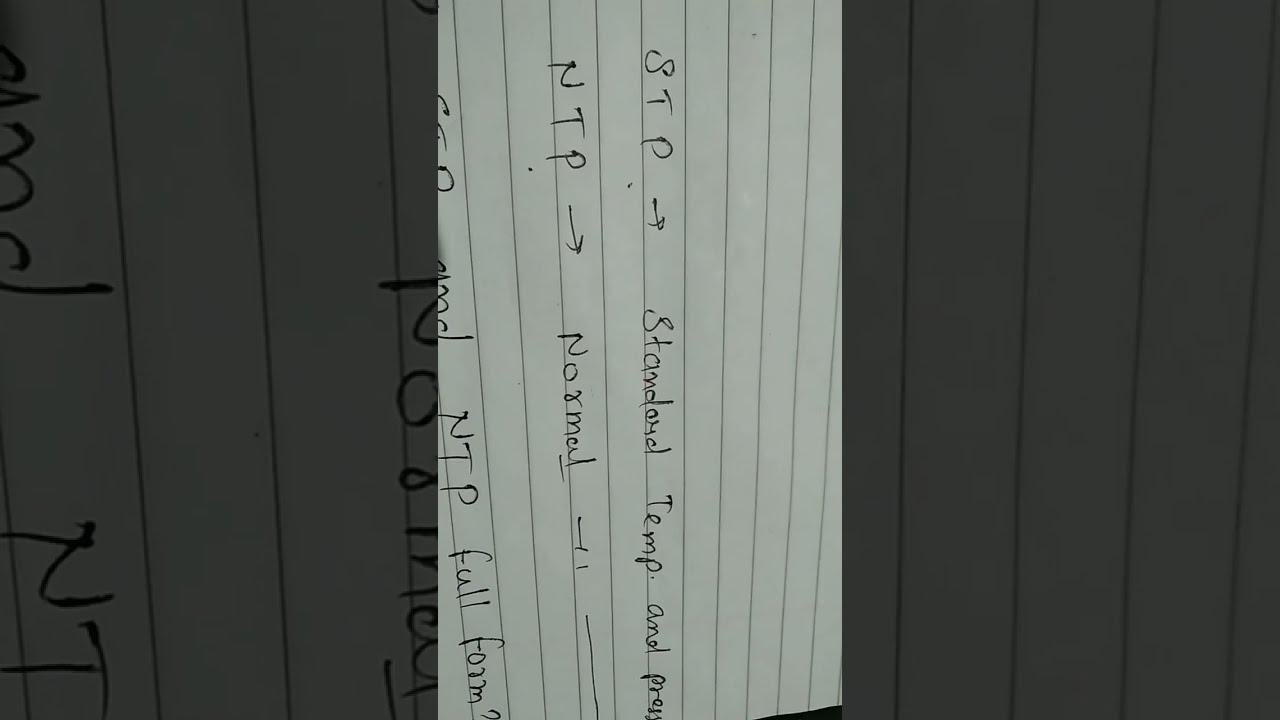 STP → Standard Temp. and press
NTP → Normal —11——
STP and NTP full form?